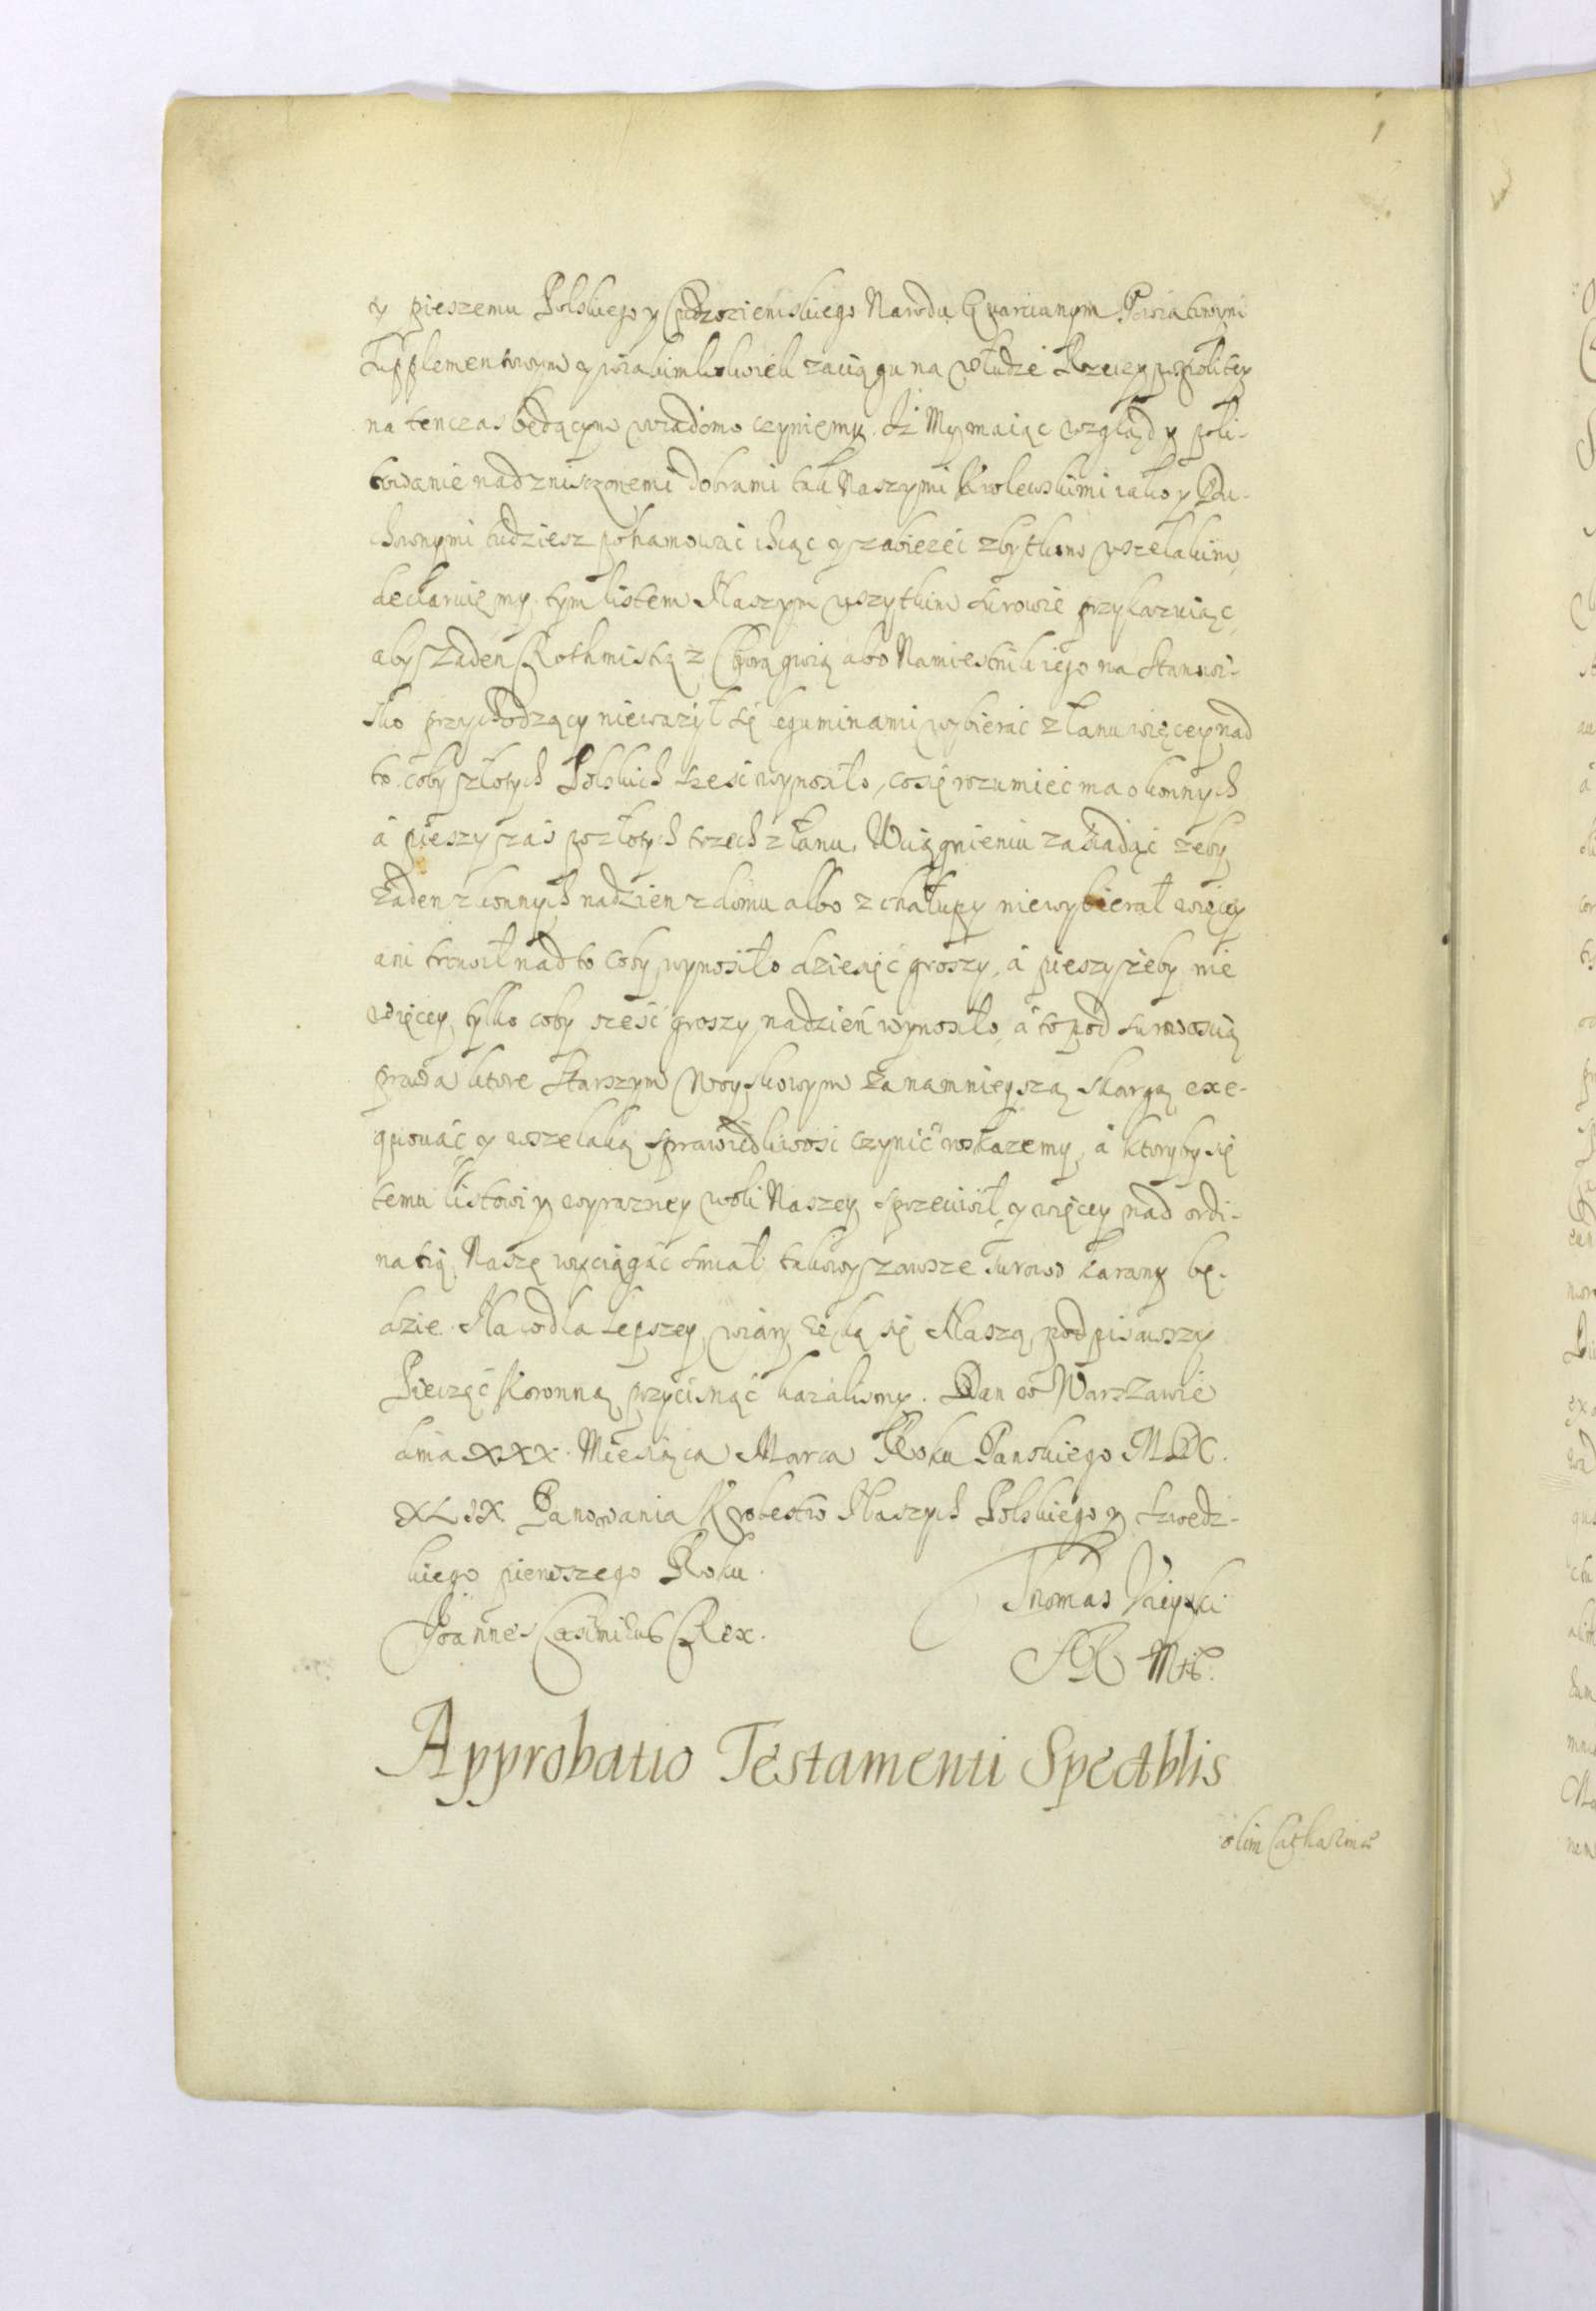 y pieszemu Polskiego y Cudzoziemskiego Narodu Quarcianym Powiatowymi
Supplementowym y wiakimkolwiek zaciągu na służbie Rzeczypospolitey
na tenczas będącym wiadomo czyniemy. Iż My maiąc wzgląd y poli-
towanie nad zniszczonemi dobrami tak Naszymi Krolewskimi iako y Du-
chownymi tudziesz pohamować chcąc y zabieżeć zbytkom wszelakim,
declaruięmy tym listem Naszym wszytkim surowie przykazuiąc
aby żaden Rothmistrz z Chorągwią abo Namiestnik iego na Stanowi-
sko przychodzący nieważył się leguminami wybierać z łanu więcey nad
to coby złotych Polskich sześć wynosiło, co się rozumieć ma o konnych
a pieszy zaś po złotych trzech z łanu. W ciągnieniu zasiadąć żeby
żaden z konnych na dzien z domu albo z chałupy nie wybierał więcey
ani trawił nad to coby wynosiło dziesięć groszy, a pieszy żeby nie
więcey tylko coby sześć groszy na dzień wynosiło, a to pod surowością
prawa ktore Starszym Woyskowym za namnieyszą skargą exe-
quować y wszelaką sprawiedliwość czynić roskażemy, a ktoryby się
temu listowi y wyrazney woli Naszey sprzeciwił y więcey nad ordi-
natią Naszę wyciągać śmiał takowy zawsze surowo karany bę-
dzie. Na co dla lepszey wiary ręką się Naszą podpisawszy
Pieczęć Koronną przycisnąć kazalismy. Dan w Warszawie
dnia XXX. Miesiąca Marca Roku Panskiego MDC.
XLIX. Panowania Krolestw Naszych Polskiego y Szwedz-
kiego pierwszego Roku.
Joannes Casimirus Rex.
Thomas Uieyski
Approbatio Testamenti Spectablis
olim Catharinæ